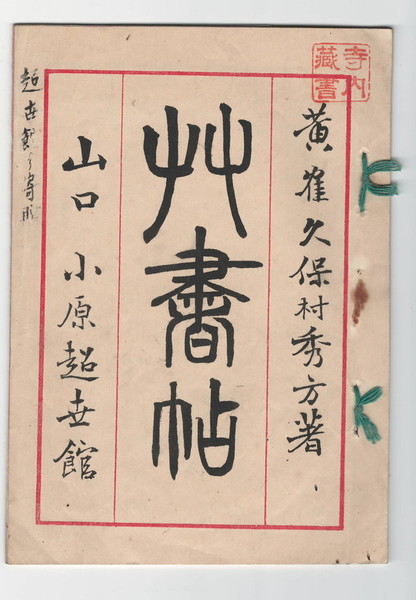 寺内
藏書
黄隺久保村秀方著
艸書帖
山口 小原超世館
超世館ヨリ寄贈